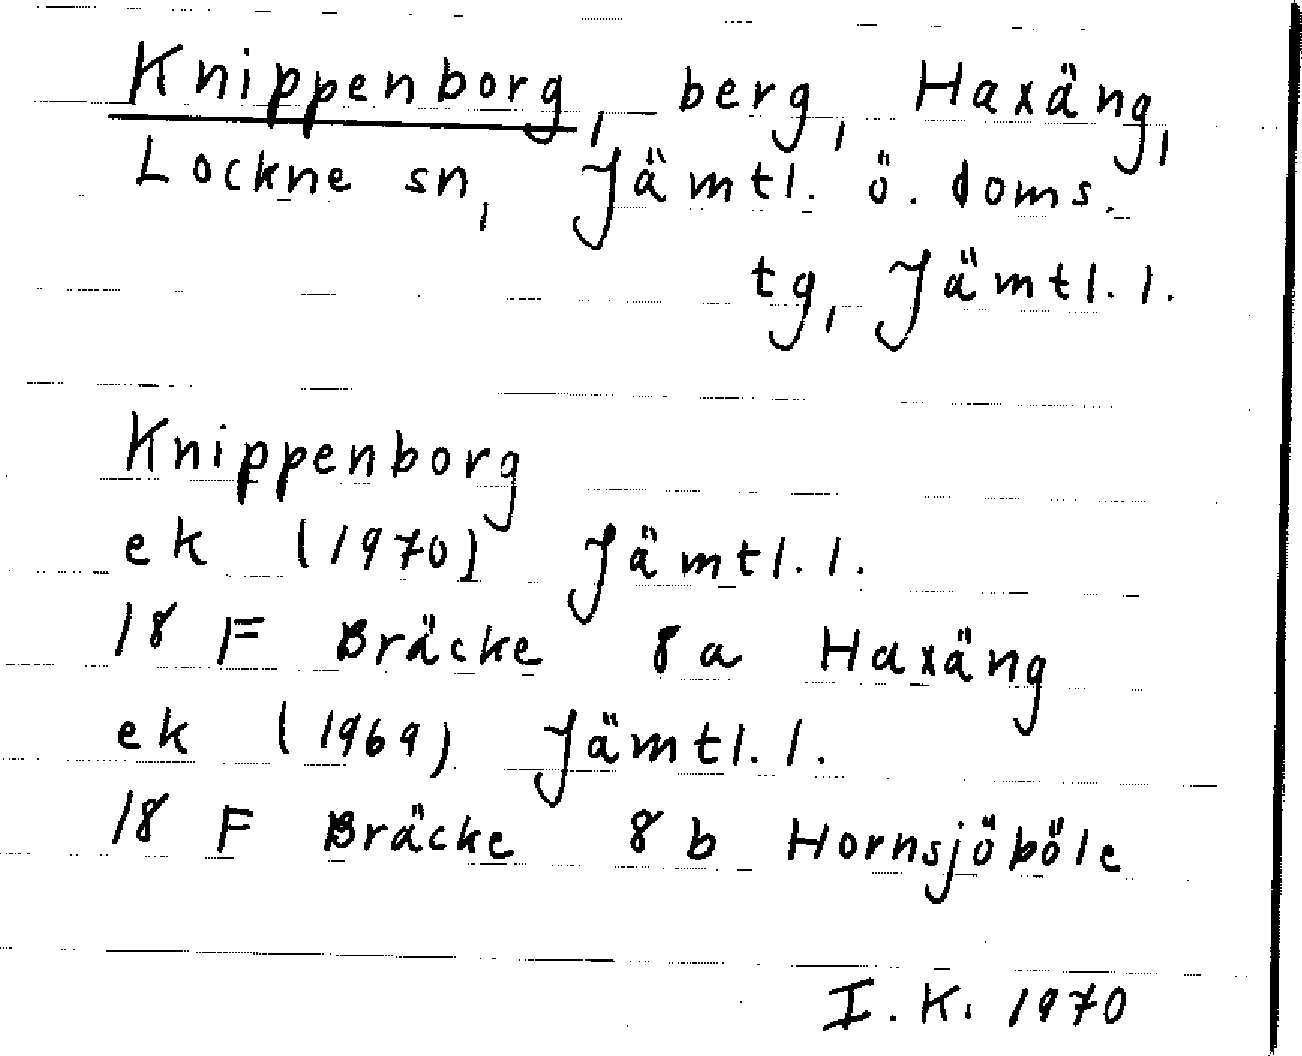 Knippenborg, berg, Haxäng,
Lockne sn, Jämtl. ö. doms.
tg, Jämtl. l.
Knippenborg
ek (1970) Jämtl. l.
18 F Bräcke 8a Haxäng
ek (1969) Jämtl. l.
18 F Bräcke 8b Hornsjöböle
I. K. 1970